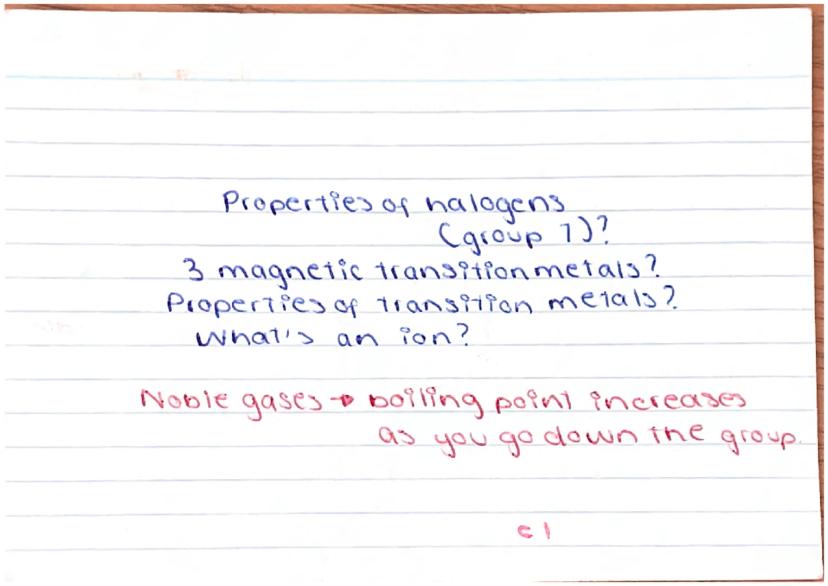 Properties of halogens
(group 7)?
3 magnetic transition metals?
Properties of transition metals?
What's an ion?
Noble gases → boiling point increases
as you go down the group.
c1